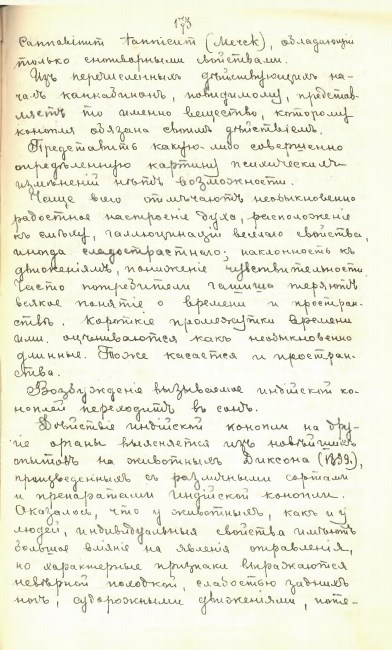 173
Cannabinum tannicum (Мерск), обладающiй
только снотворными свойствами.
Изъ перечисленныхъ дѣйствующихъ на-
чалъ каннабинонъ, повидимому, представ-
ляетъ то именно вещество, которому
конопля обязана своимъ дѣйствiемъ.
Представить какую-либо совершенно
опредѣленную картину психическихъ
измѣненiй нѣтъ возможности.
Чаще всего отмѣчаютъ необыкновенно
радостное настроенiе духа, расположенiе
къ смѣху, галлюцинацiи веселаго свойства,
иногда сладострастнаго; наклонность къ
движенiямъ, пониженiе чувствительности.
Часто потребители гашиша теряютъ
всякое понятiе о времени и простран-
ствѣ. Короткiе промежутки времени
ими оцѣниваются какъ необыкновенно
длинные. Тоже касается и простран-
ства.
Возбужденiе вызываемое индiйской ко-
ноплей переходитъ въ сонъ.
Дѣйствiе индiйской конопли на дру-
гiе органы выясняется изъ новѣйшихъ
опытовъ на животныхъ Диксона (1899.),
произведенныхъ съ различными сортами
и препаратами индiйской конопли.
Оказалось, что у животныхъ, какъ и у
людей, индивидуальныя свойства имѣютъ
большое влiянiе на явленiя отравленiя,
но характерные признаки выражаются
невѣрной походкой, слабостью заднихъ
ногъ, судорожными движенiями, поте-